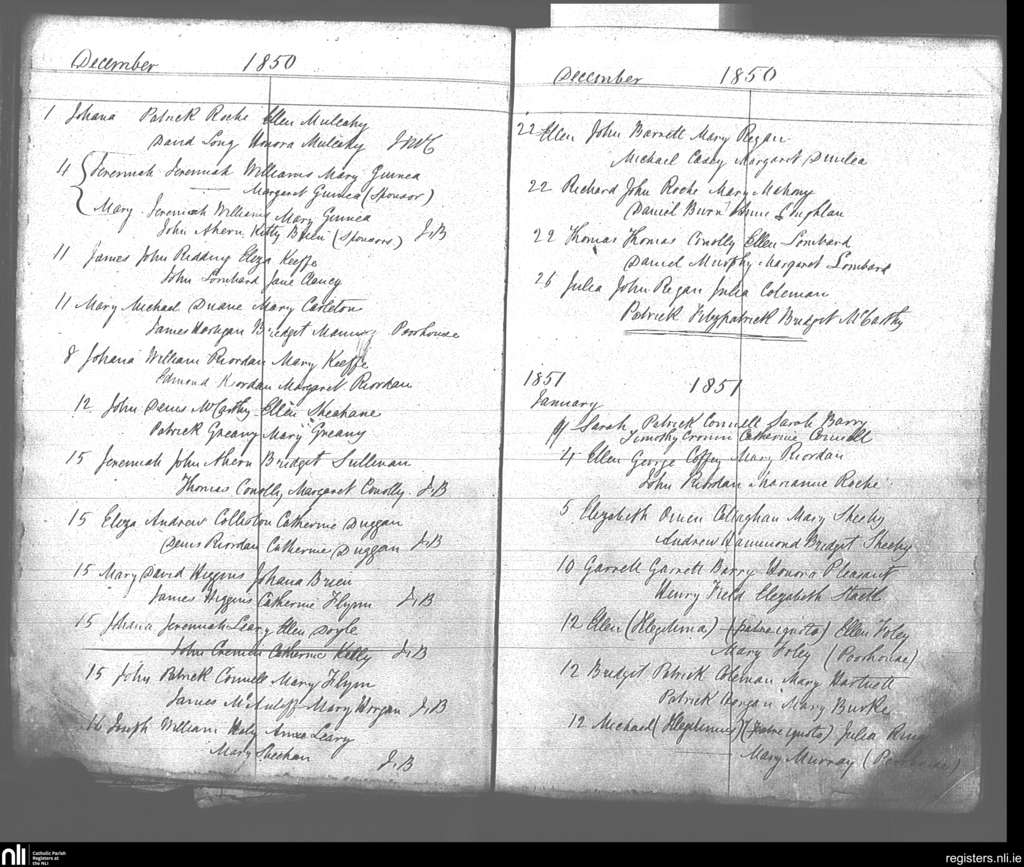 December 1850
1 Johana Patrick Roche Ellen Mulcahy
David Long Honora Mulcahy
4 Jeremiah Jeremiah Williams Mary Guinea
Margaret Guinea (Sponsor)
Mary Jeremiah Williams Mary Guinea
John Ahern Kitty Brien (Sponsors) J,B
11 James John Redding Eliza Keeffe
John Lombard Jane Clancy
11 Mary Michael Duane Mary Carleton
James Horrigan Bridget Poorhouse
8 Johana William Riordan Mary Keeffe
Edmond Riordan Margaret Riordan
12 John Denis McCarthy Ellen Sheahane
Patrick Greany Mary Greany
15 Jeremiah John Ahern Bridget Sullivan
Thomas Conolly Margaret Conolly J,B
15 Eliza Andrew Catherine Duggan
Denis Riordan Catherine Duggan J,B
15 Mary David Higgins Johana Brien
James Higgins Catherine Flynn J,B
15 Johana Jeremiah Leary Ellen Doyle
John Catherine Kelly J,B
15 John Patrick Connell Mary Flynn
James Mary Horgan J,B
16 Joseph William Leary
Mary Sheehan J,B
December 1850
22 Ellen John Barrett Mary Regan
Michael Casey Margaret Dunlea
22 Richard John Roche Mary Mahony
Daniel Anne Coughlan
22 Thomas Thomas Conolly Ellen Lombard
Daniel Murphy Margaret Lombard
26 Julia John Regan Julia Coleman
Patrick Fitzpatrick Bridget McCarthy
1851 1851
January
Sarah Patrick Connell Sarah Barry
Timothy Cronin Catherine Connell
4 Ellen George Coffey Mary Riordan
John Riordan Marianne Roche
5 Elizabeth Owen Callaghan Mary Sheehy
Andrew Hammond Bridget Sheehy
10 Garrett Garrett Barry Honora Pleasant
Henry Field Elizabeth
12 Ellen (Illegitima) (patre ignoto) Ellen Foley
Mary Foley (Poorhouse)
12 Bridget Patrick Coleman Mary Hartnett
Patrick Mary Burke
12 Michael (Illegitimus) (patre ignoto) Julia
Mary Murray
nli Catholic Parish
Registers at
the NLI
registers.nli.ie